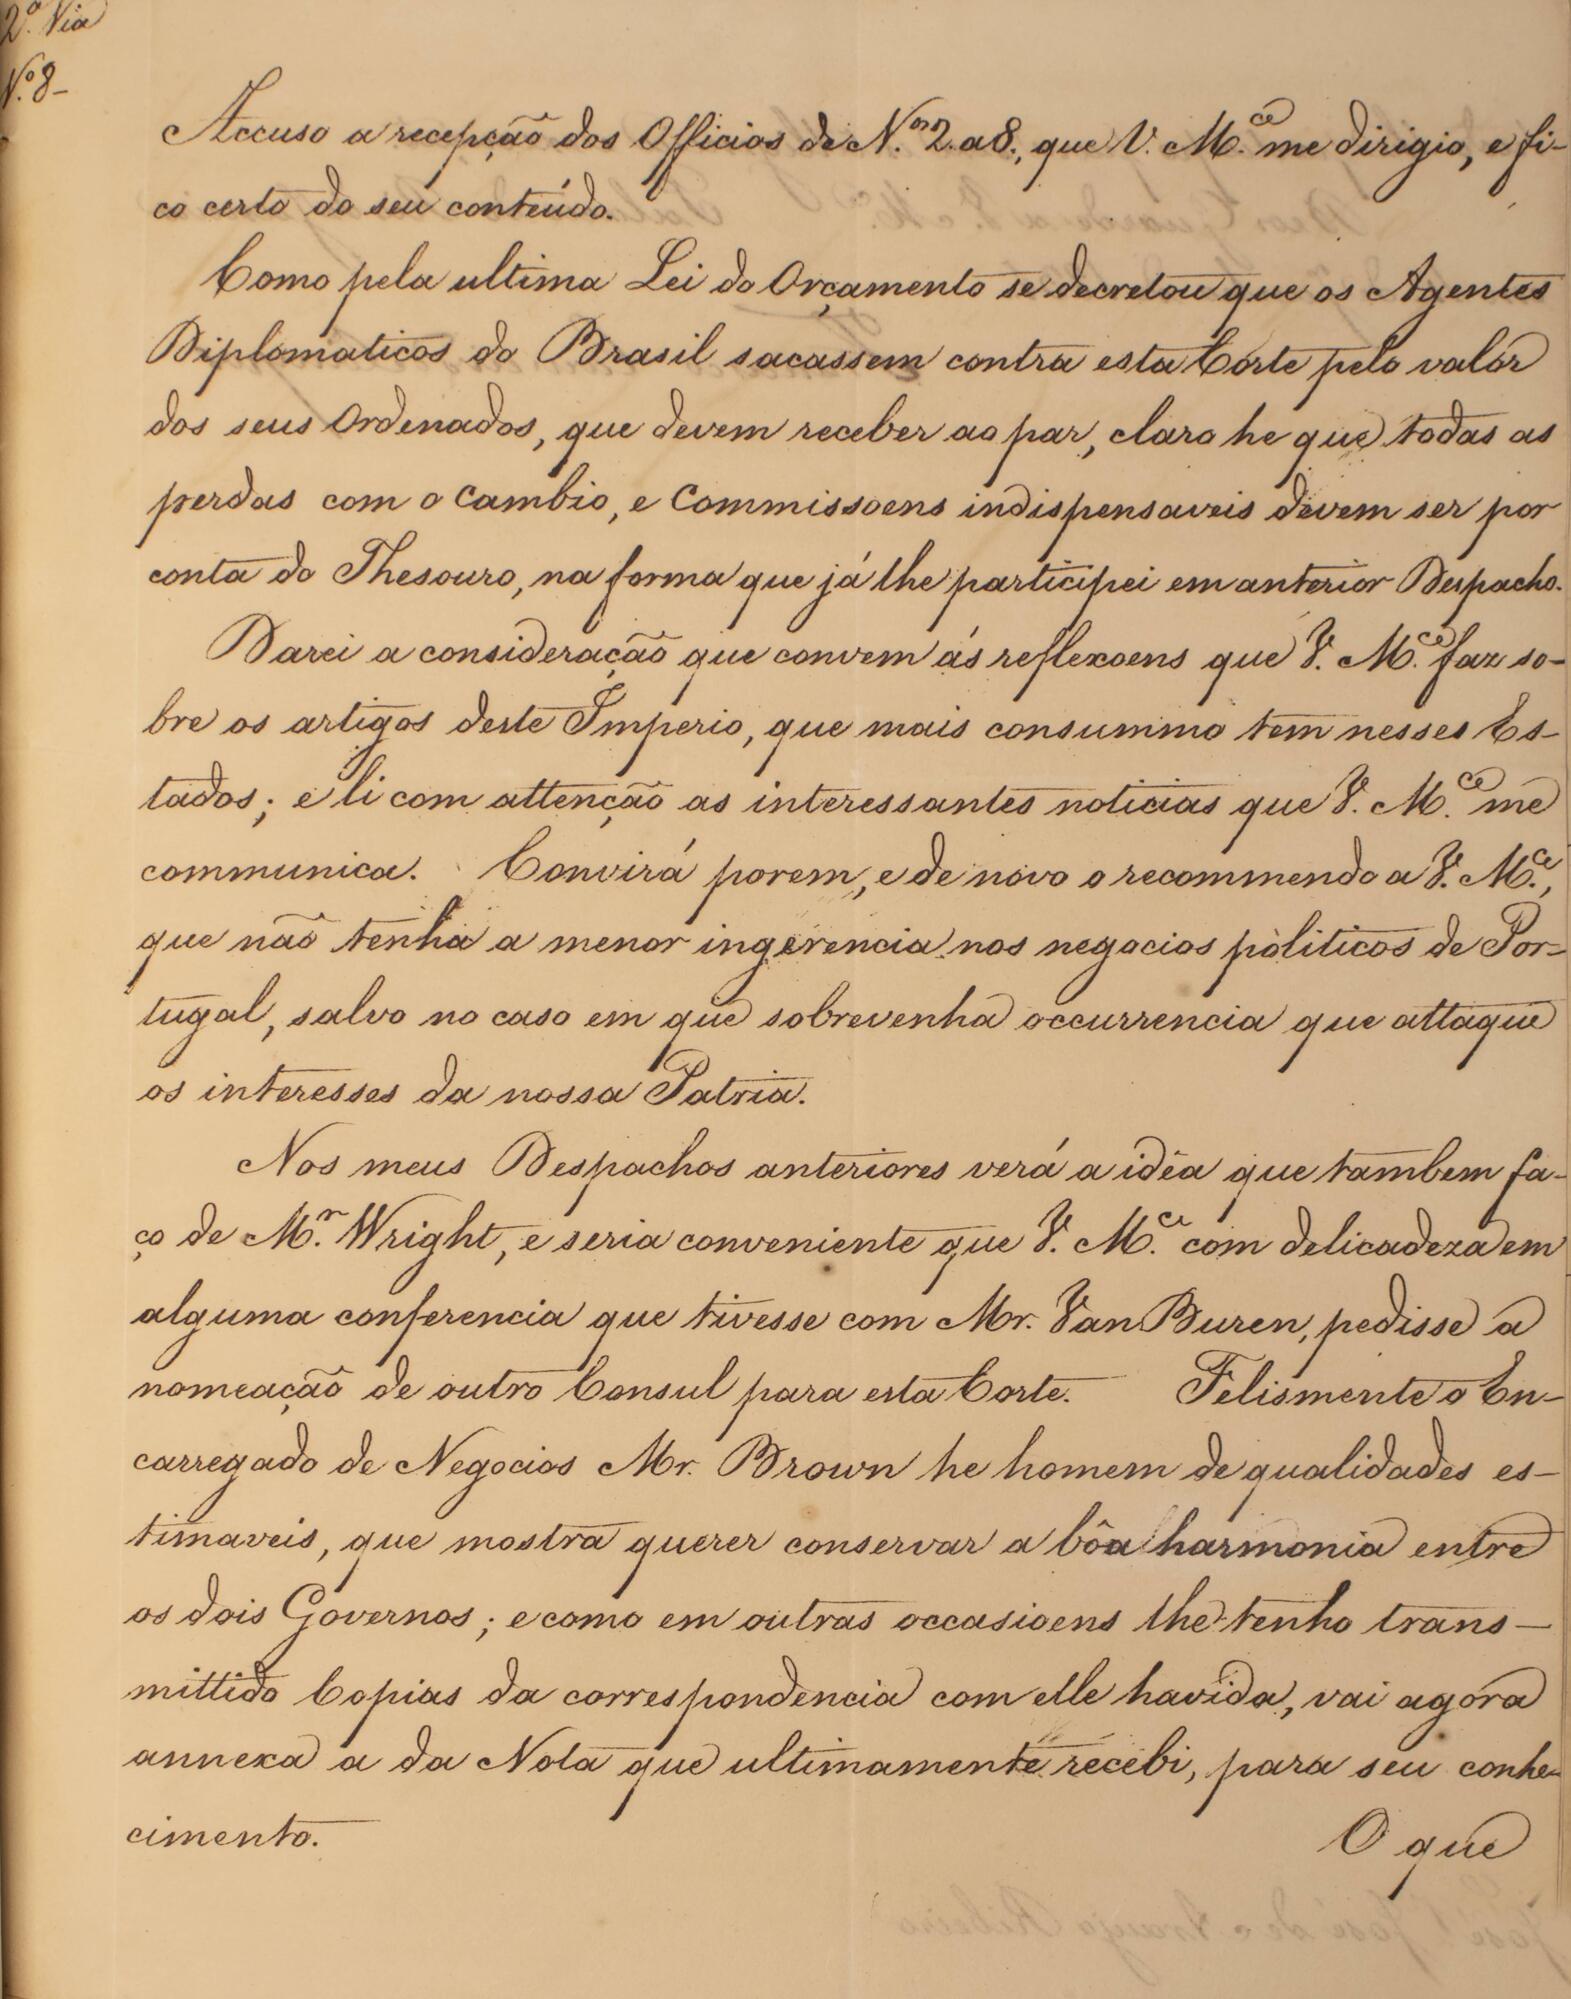 2.ª Via
N.º 8-
Accuso a recepção dos Officios de N.os 2. a 8., que V. M.ce me dirigio, e fi-
co certo do seu conteúdo.
Como pela ultima Lei do Orçamento se decretou que os Agentes
Diplomaticos do Brasil sacassem contra esta Côrte pelo valôr
dos seus Ordenados, que devem receber ao par, claro he que todas as
perdas com o Cambio, e Commissoens indispensaveis devem ser por
conta do Thesouro, na forma que já lhe participei em anterior Despacho.
Darei a consideração que convem ás reflexoens que V. M.ce faz so-
bre os artigos deste Imperio, que mais consummo tem nesses Es-
tados; e li com attenção as interessantes noticias que V. M.ce me
communica. Convirá porem, e de novo o recommendo a V. M.ce,
que não tenha a menor ingerencia nos negocios politicos de Por-
tugal, salvo no caso em que sobrevenha occurrencia que attaque
os interesses da nossa Patria.
Nos meus Despachos anteriores verá a idéa que tambem fa-
ço de M.r Wright, e seria conveniente que V. M.ce com delicadeza em
alguma conferencia que tivesse com Mr. Van Buren, pedisse a
nomeação de outro Consul para esta Corte. Felismente o En-
carregado de Negocios Mr. Brown he homem de qualidades es-
timaveis, que mostra querer conservar a bôa harmonia entre
os dois Governos; e como em outras occasioens lhe tenho trans-
mittido Copias da correspondencia com elle havida, vai agora
annexa a da Nota que ultimamente recebi, para seu conhe-
cimento.
O que